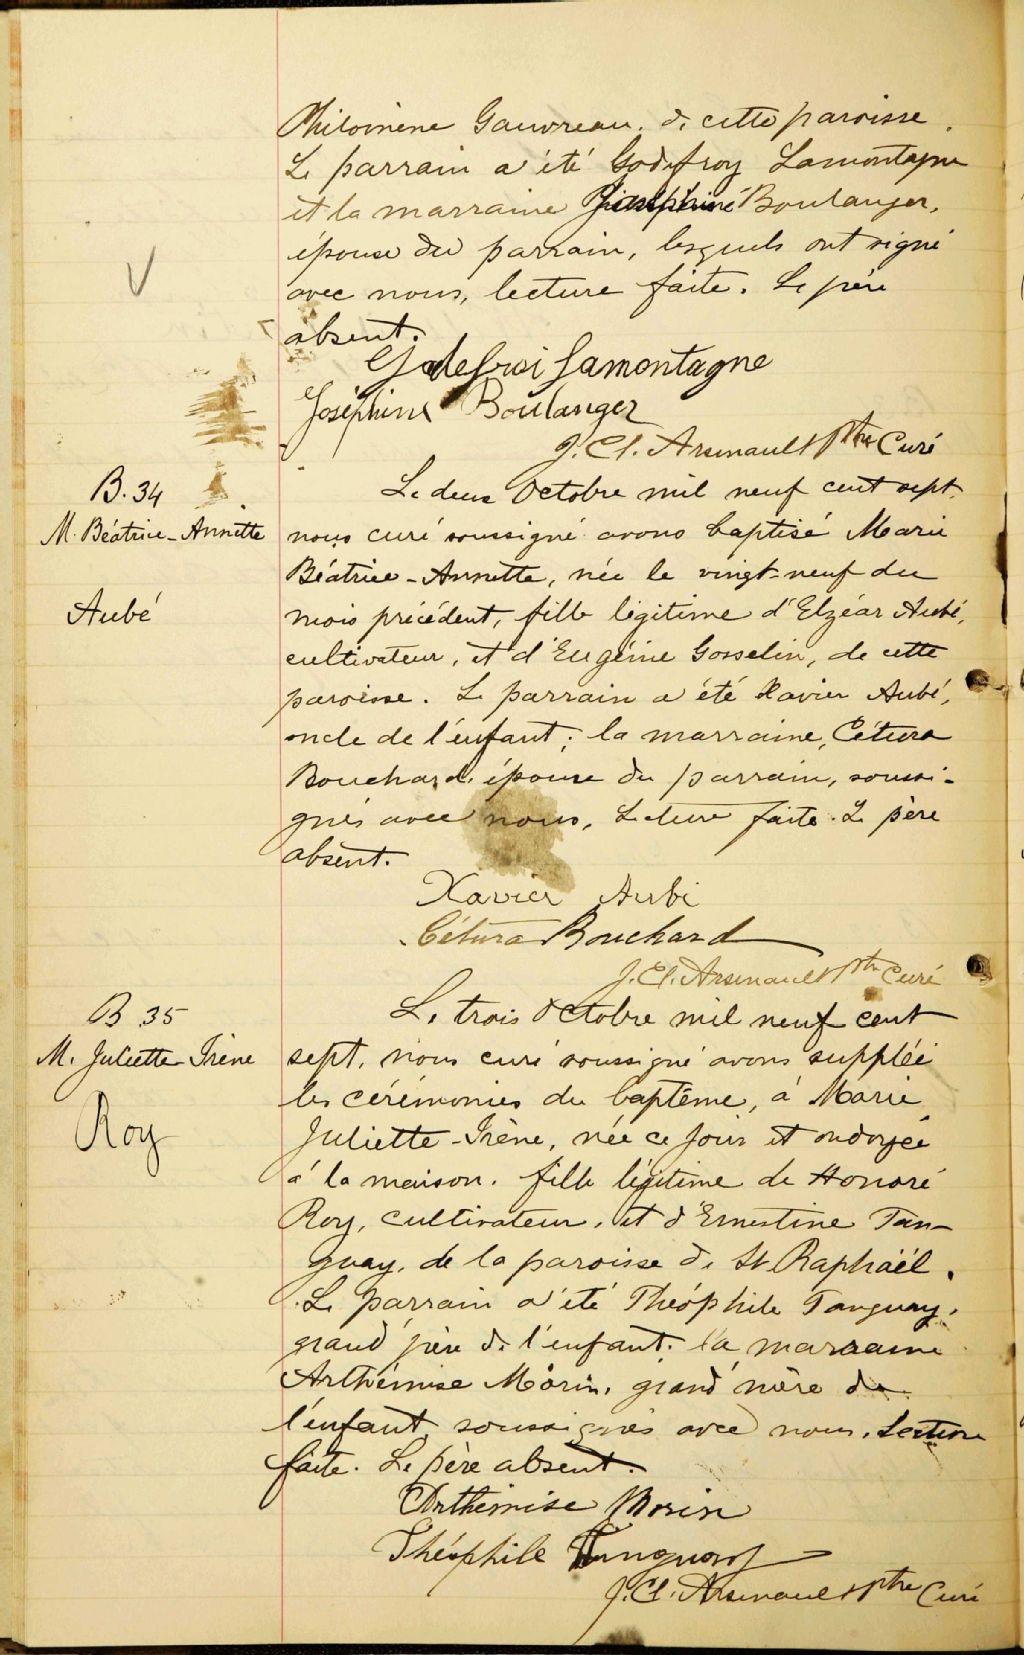 Philomène Gauvreau, de cette paroisse.
Le parrain a été Godefroy Lamontagne
et la marraine Joséphine Boulanger,
épouse du parrain, lesquels ont signé
avec nous, lecture faite. Le père
absent.
Godefroi Lamontagne
Joséphine Boulanger
J. Cl. Arsenault Ptre Curé
B. 34
M. Béatrice-Annette
Aubé
Le deux Octobre mil neuf cent sept
nous curé soussigné avons baptisé Marie
Béatrice-Annette, née le vingt-neuf du
mois précédent, fille légitime d'Elzéar Aubé,
cultivateur, et d'Eugénie Gosselin, de cette
paroisse. Le parrain a été Xavier Aubé,
oncle de l'enfant; la marraine, Cétura
Bouchard, épouse du parrain, soussi-
gnés avec nous, Lecture faite. Le père
absent.
Xavier Aubé
Cétura Bouchard
J. Cl. Arsenault Ptre Curé
B 35
M. Juliette-Irène
Roy
Le trois Octobre mil neuf cent
sept, nous curé soussigné avons suppléé
les cérémonies du baptême, à Marie
Juliette-Irène, née ce jour et ondoyée
à la maison, fille légitime de Honoré
Roy, cultivateur, et d'Ernestine Tan-
guay, de la paroisse de St Raphaël.
Le parrain a été Théophile Tanguay,
grand père de l'enfant; la marraine
Arthémise Morin, grand'mère de
l'enfant, soussignés avec nous, Lecture
faite. Le père absent.
Arthémise Morin
Théophile Tanguay
J. Cl. Arsenault ptre Curé